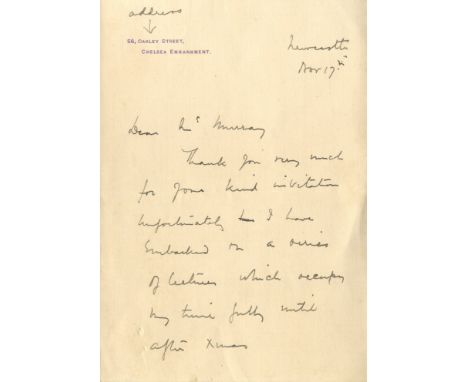 address
56, OAKLEY STREET,
CHELSEA EMBANKMENT.
Newcastle
Nov 17th
Dear Mrs Murray
Thank you very much
for your kind invitation
Unfortunately I have
Embarked on a series
of lectures which occupy
my time fully until
after Xmas